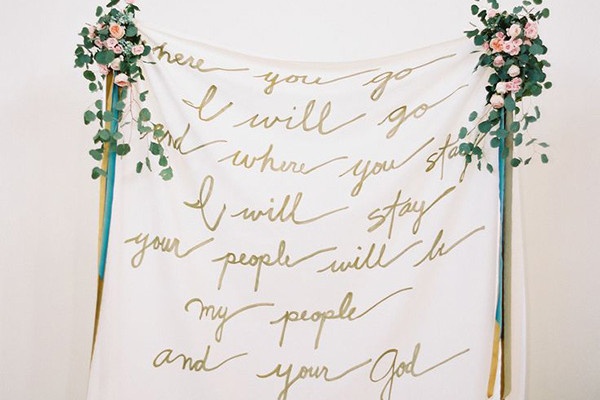 where you go
I will go
and where you stay
I will stay
your people will be
my people
and your God